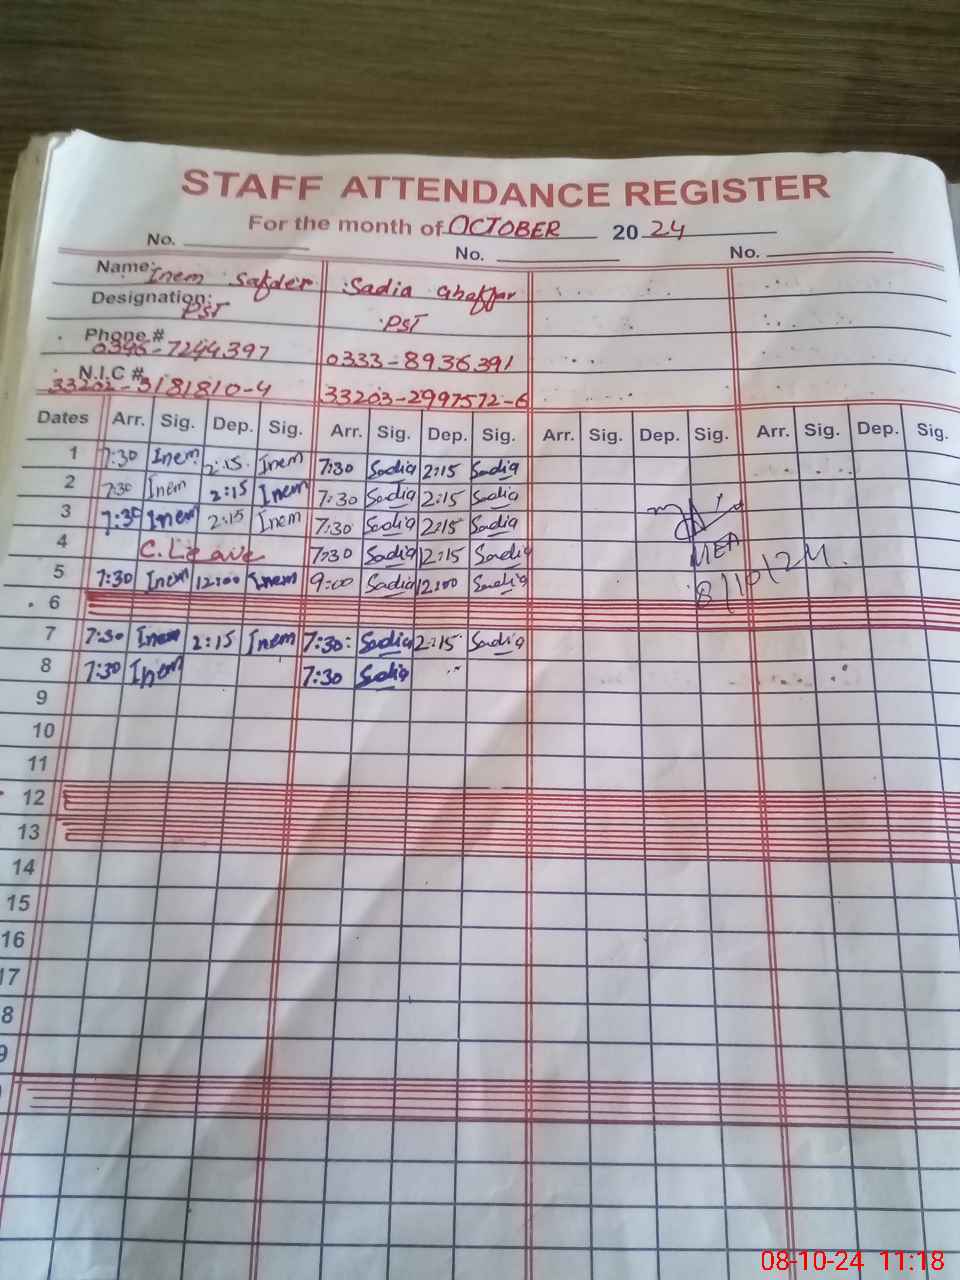 STAFF ATTENDANCE REGISTER
For the month of OCTOBER 20 24
No. No. No.
Name: Inem Safder Sadia Ghaffar
Designation: PST PST
Phone # 0346-7244397 0333-8936391
N.I.C # 33202-3181810-4 33203-2997572-6
Dates Arr. Sig. Dep. Sig. Arr. Sig. Dep. Sig. Arr. Sig. Dep. Sig. Arr. Sig. Dep. Sig.
1 7:30 Inem 2:15 Inem 7:30 Sadia 2:15 Sadia
2 7:30 Inem 2:15 Inem 7:30 Sadia 2:15 Sadia
3 7:30 Inem 2:15 Inem 7:30 Sadia 2:15 Sadia
4 C.Leave 7:30 Sadia 2:15 Sadia MEA
5 7:30 Inem 12:00 Inem 9:00 Sadia 12:00 Sadia 8/10/24.
6
7 7:30 Inem 2:15 Inem 7:30: Sadia 2:15 Sadia
8 7:30 Inem 7:30 Sadia
9
10
11
12
13
14
15
16
17
8
9
08-10-24 11:18